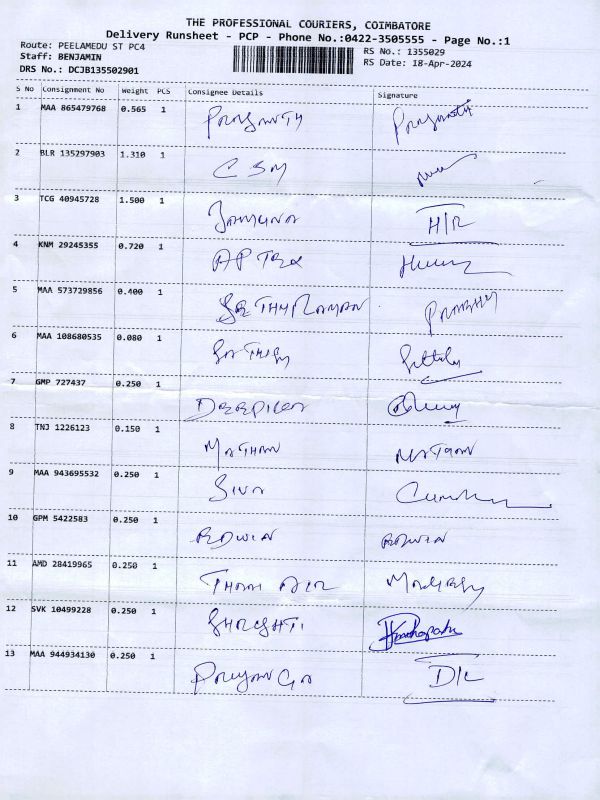 THE PROFESSIONAL COURIERS, COIMBATORE
Delivery Runsheet - PCP - Phone No.:0422-3505555 - Page No.:1
Route: PEELAMEDU ST PC4 RS No.: 1355029
Staff: BENJAMIN RS Date: 18-Apr-2024
DRS No.: DCJB135502901
S No Consignment No Weight PCS Consignee Details Signature
1 MAA 865479768 0.565 1 PRASANTH Prasanth
2 BLR 135297903 1.310 1 CSM
3 TCG 40945728 1.500 1 JAMUNA H/R
4 KNM 29245355 0.720 1 AP TEX
5 MAA 573729856 0.400 1 SETHURAMAN PRABHU
6 MAA 108680535 0.080 1 SATHISH
7 GMP 727437 0.250 1 DEEPIKA
8 TNJ 1226123 0.150 1 MATHAN
9 MAA 943695532 0.250 1 SIVA
10 GPM 5422583 0.250 1 EDWIN EDWIN
11 AMD 28419965 0.250 1
12 SVK 10499228 0.250 1
13 MAA 944934130 0.250 1 PRIYANGA D/L